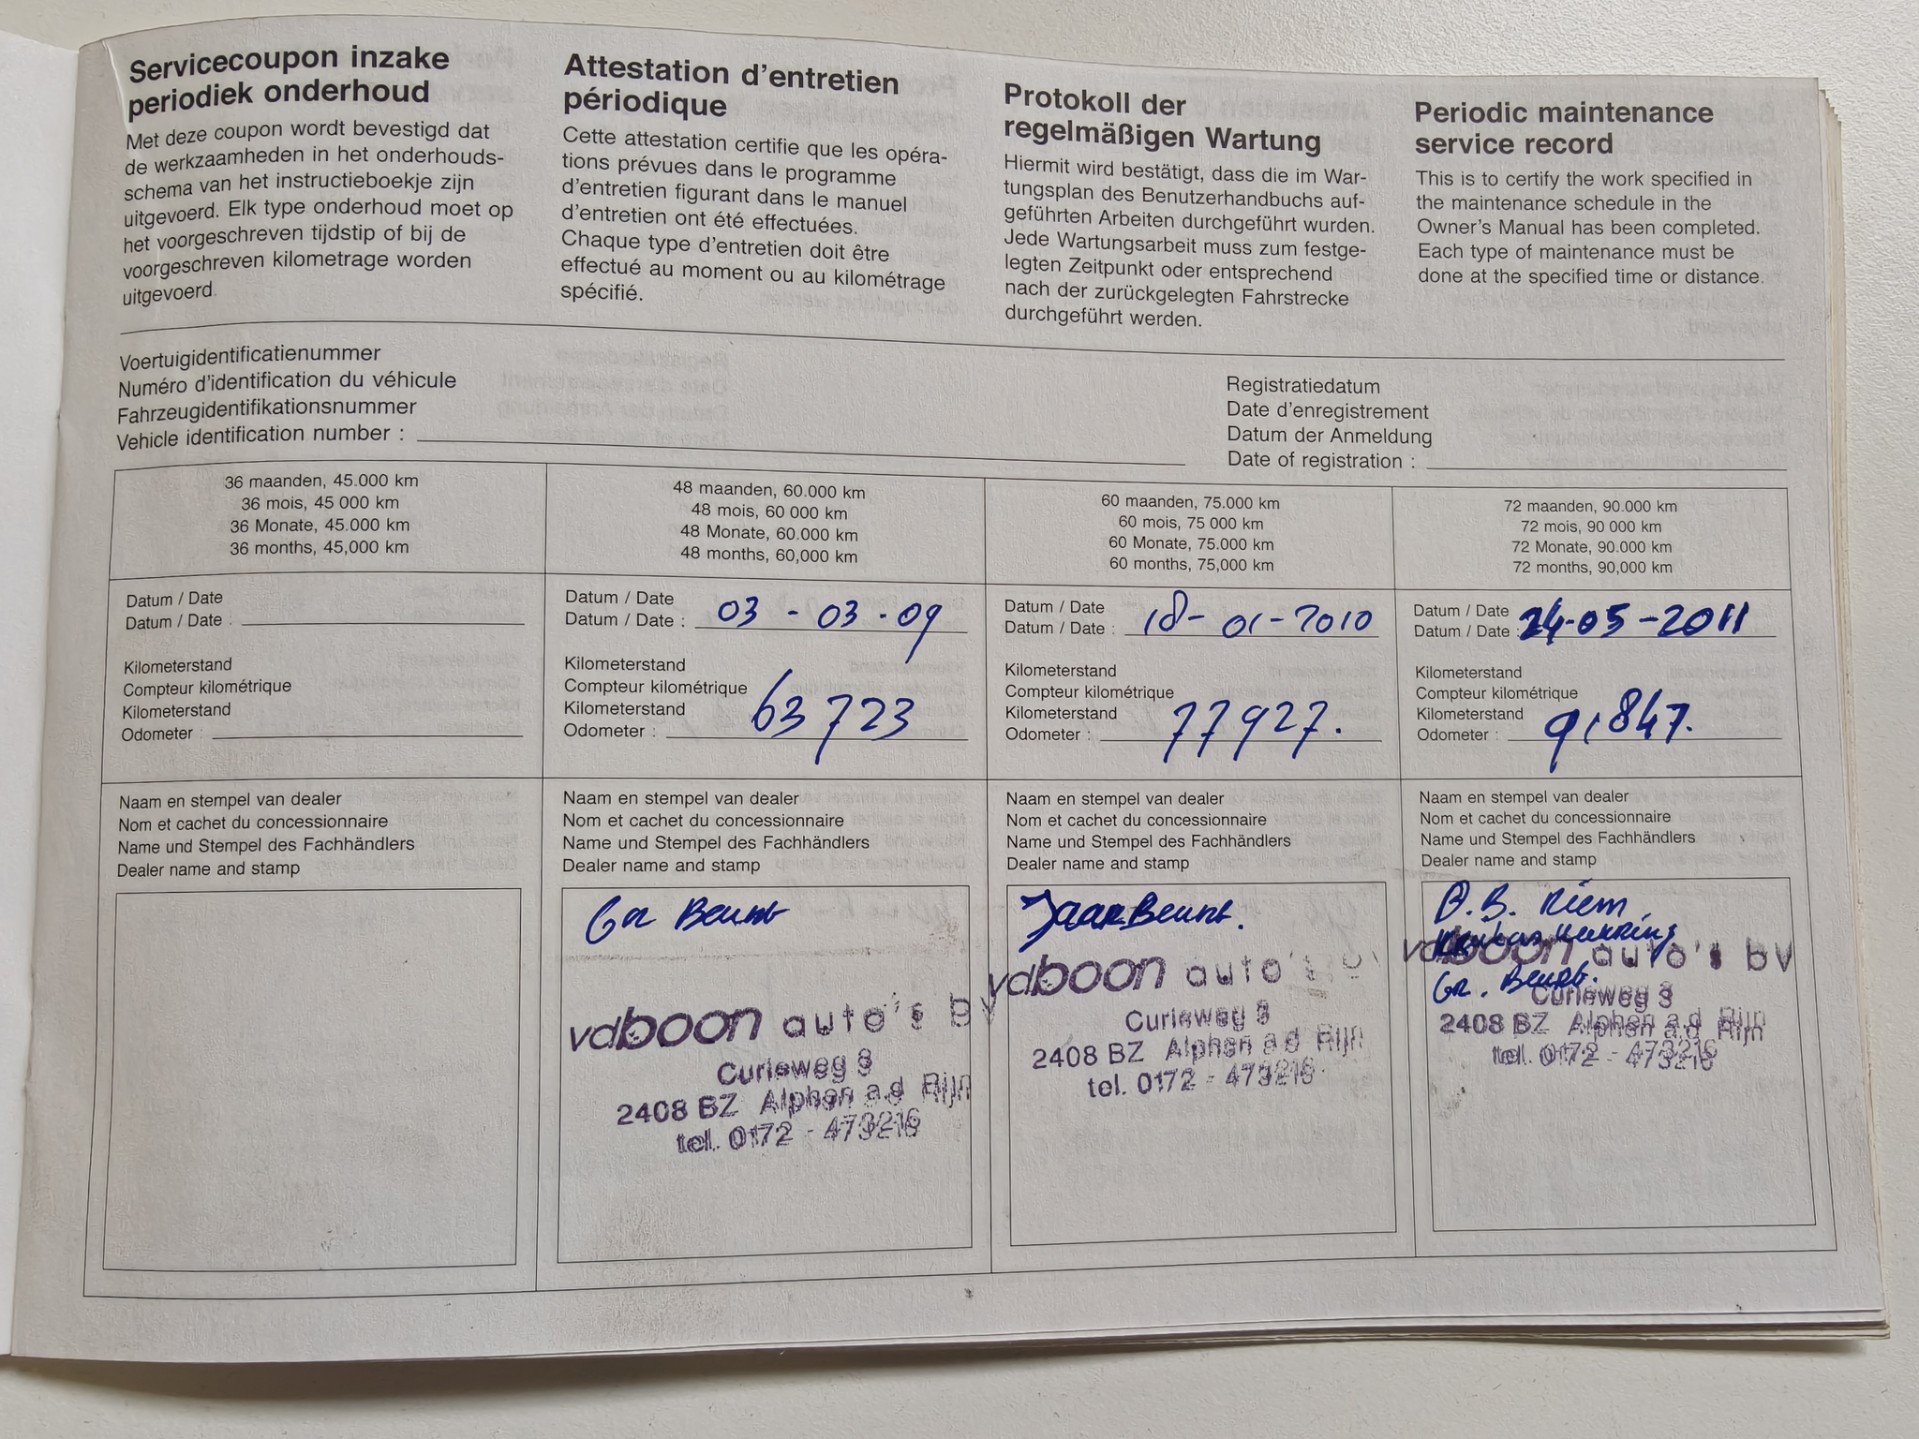 Servicecoupon inzake
periodiek onderhoud
Met deze coupon wordt bevestigd dat
de werkzaamheden in het onderhouds-
schema van het instructieboekje zijn
uitgevoerd. Elk type onderhoud moet op
het voorgeschreven tijdstip of bij de
voorgeschreven kilometrage worden
uitgevoerd.
Attestation d'entretien
périodique
Cette attestation certifie que les opéra-
tions prévues dans le programme
d'entretien figurant dans le manuel
d'entretien ont été effectuées.
Chaque type d'entretien doit être
effectué au moment ou au kilométrage
spécifié.
Protokoll der
regelmäßigen Wartung
Hiermit wird bestätigt, dass die im War-
tungsplan des Benutzerhandbuchs auf-
geführten Arbeiten durchgeführt wurden.
Jede Wartungsarbeit muss zum festge-
legten Zeitpunkt oder entsprechend
nach der zurückgelegten Fahrstrecke
durchgeführt werden.
Periodic maintenance
service record
This is to certify the work specified in
the maintenance schedule in the
Owner's Manual has been completed.
Each type of maintenance must be
done at the specified time or distance.
Voertuigidentificatienummer
Numéro d'identification du véhicule
Fahrzeugidentifikationsnummer
Vehicle identification number :
Registratiedatum
Date d'enregistrement
Datum der Anmeldung
Date of registration :
36 maanden, 45.000 km
36 mois, 45 000 km
36 Monate, 45.000 km
36 months, 45,000 km
Datum / Date
Datum / Date :
Kilometerstand
Compteur kilométrique
Kilometerstand
Odometer :
Naam en stempel van dealer
Nom et cachet du concessionnaire
Name und Stempel des Fachhändlers
Dealer name and stamp
48 maanden, 60.000 km
48 mois, 60 000 km
48 Monate, 60.000 km
48 months, 60,000 km
Datum / Date
Datum / Date : 03 - 03 - 09
Kilometerstand
Compteur kilométrique
Kilometerstand
Odometer : 63723
Naam en stempel van dealer
Nom et cachet du concessionnaire
Name und Stempel des Fachhändlers
Dealer name and stamp
Gr Beurt
vdboon auto's bv
Curieweg 3
2408 BZ Alphen a.d. Rijn
tel. 0172 - 473216
60 maanden, 75.000 km
60 mois, 75 000 km
60 Monate, 75.000 km
60 months, 75,000 km
Datum / Date
Datum / Date : 18 - 01 - 2010
Kilometerstand
Compteur kilométrique
Kilometerstand
Odometer : 77927.
Naam en stempel van dealer
Nom et cachet du concessionnaire
Name und Stempel des Fachhändlers
Dealer name and stamp
Jaar Beurt.
vdboon auto's
Curieweg 3
2408 BZ Alphen a.d. Rijn
tel. 0172 - 473216
72 maanden, 90.000 km
72 mois, 90 000 km
72 Monate, 90.000 km
72 months, 90,000 km
Datum / Date
Datum / Date : 24-05-2011
Kilometerstand
Compteur kilométrique
Kilometerstand
Odometer : 91847.
Naam en stempel van dealer
Nom et cachet du concessionnaire
Name und Stempel des Fachhändlers
Dealer name and stamp
D.B. Riem
Keerring
vdboon auto's bv
Gr. Beurt.
Curieweg 3
2408 BZ Alphen a.d. Rijn
tel. 0172 - 473216